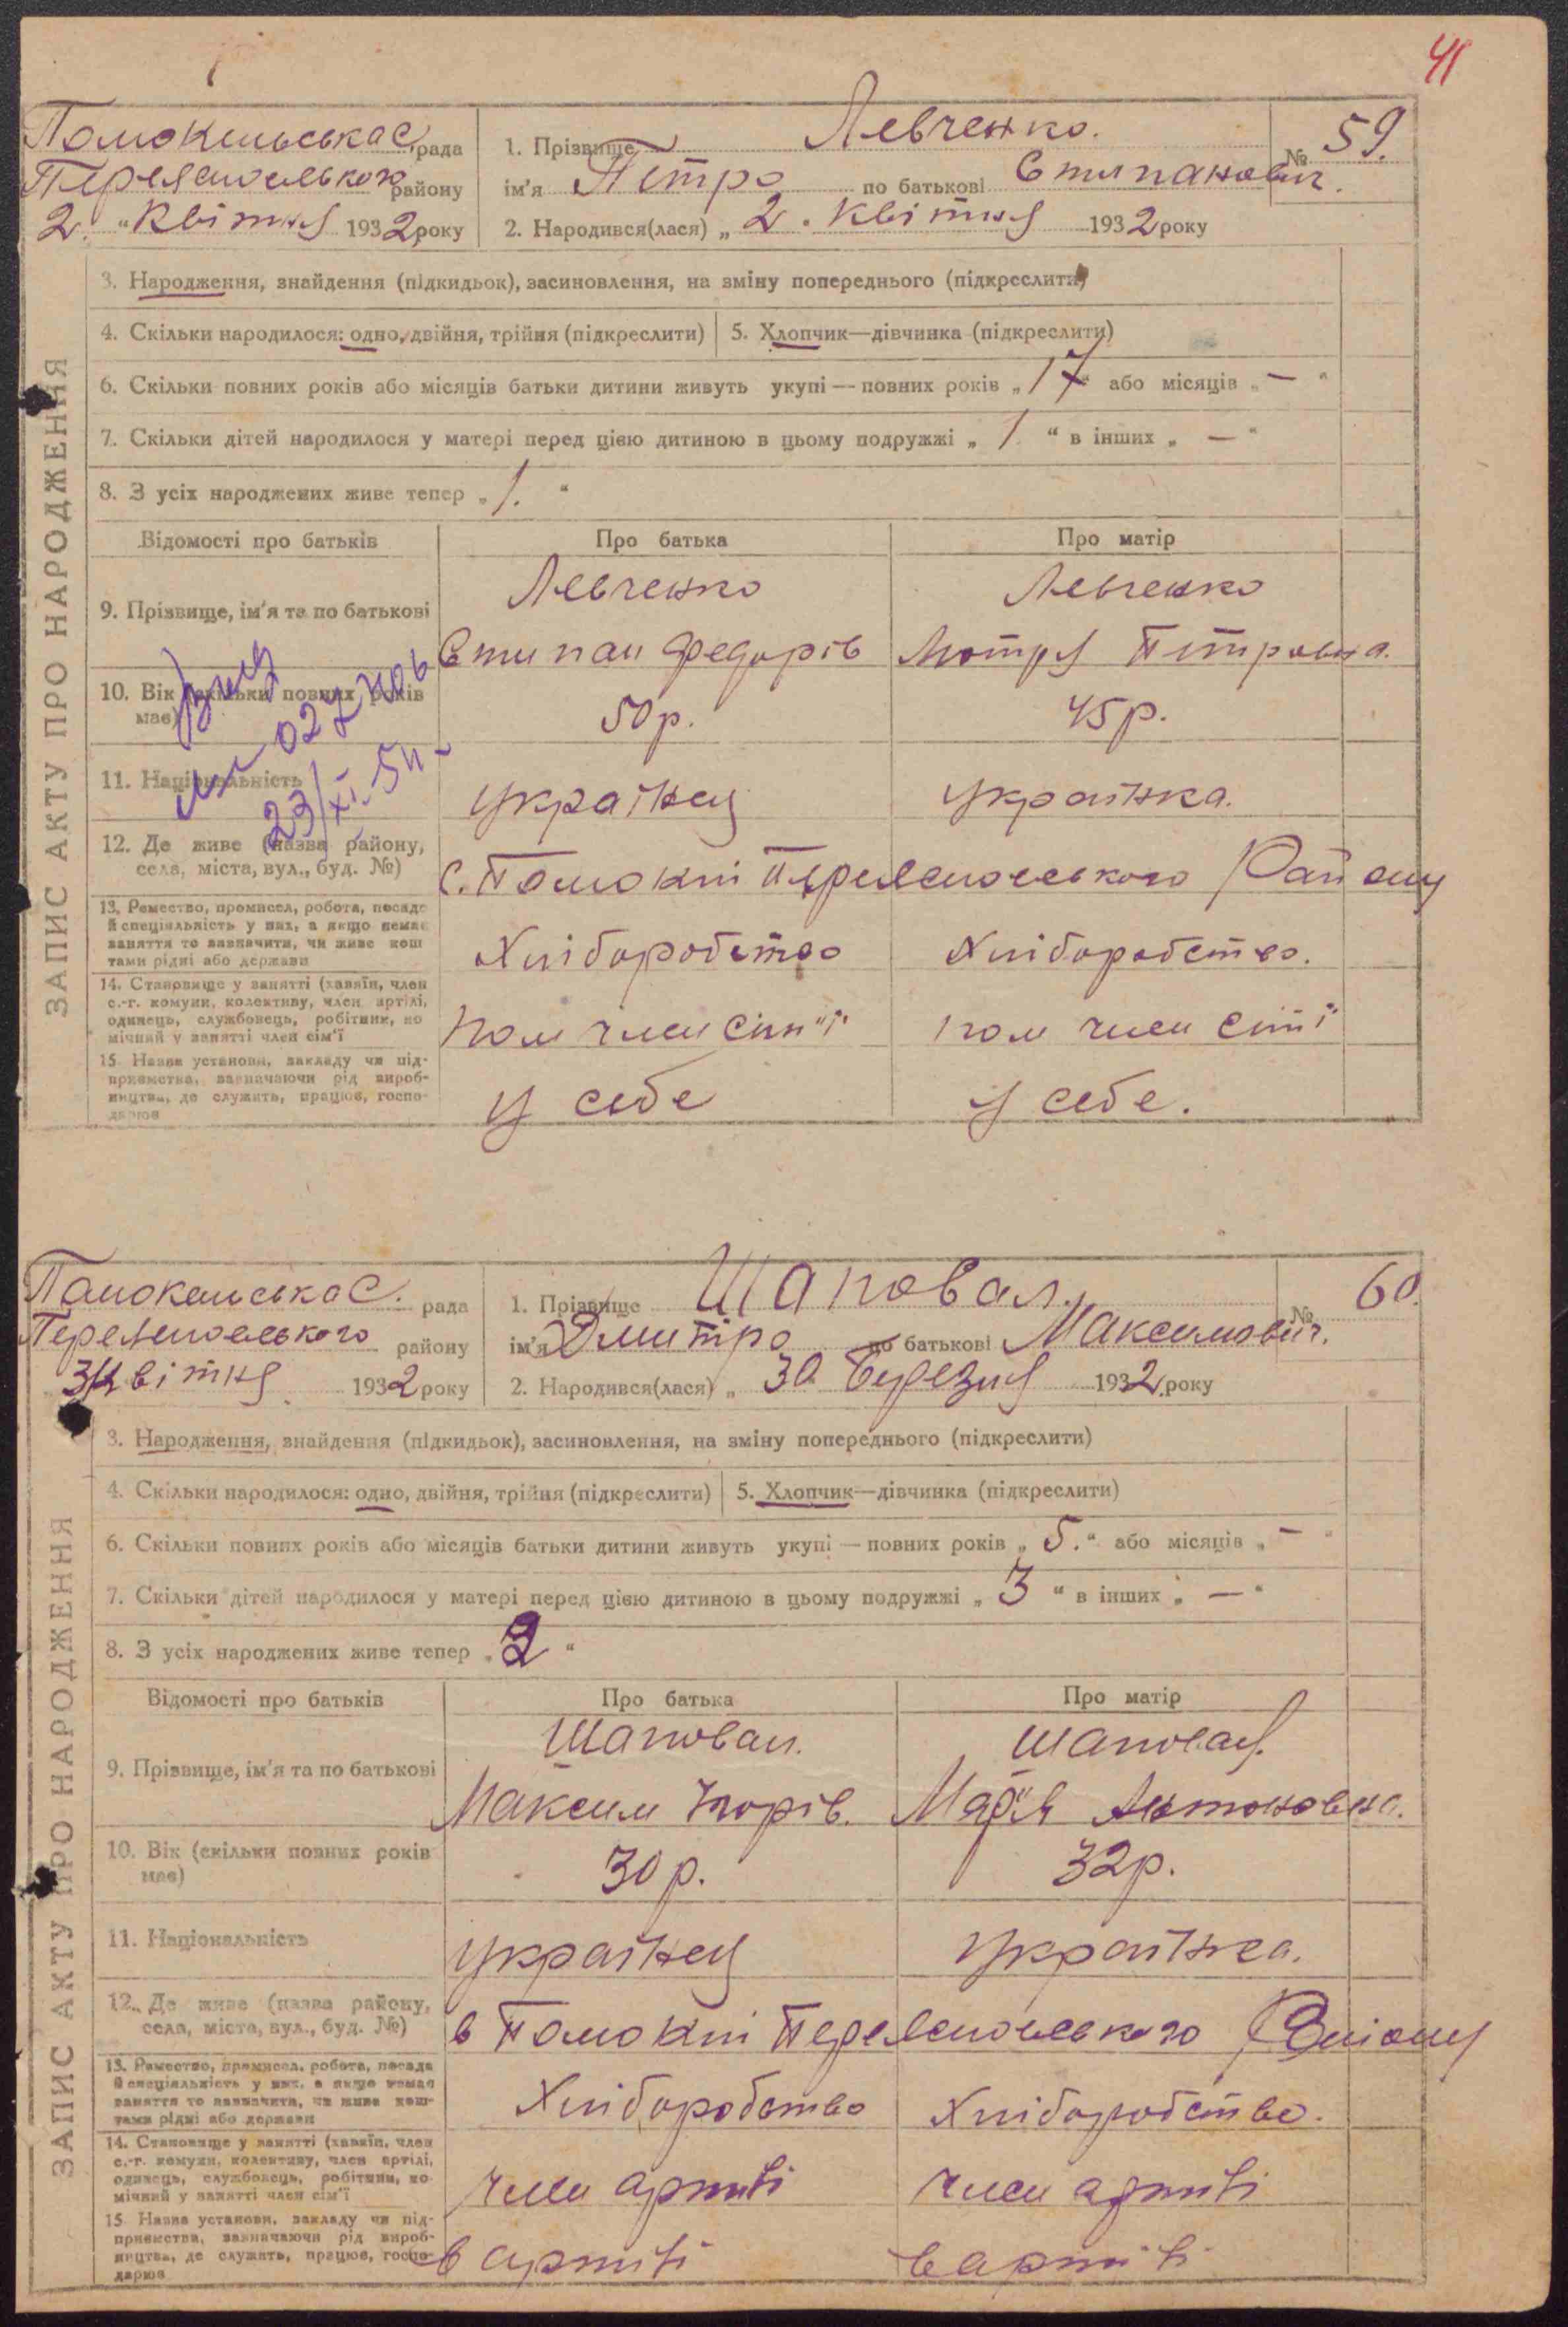 41
Помокельська с. рада
Переяславського району
2. "Квітня 1932 року
1. Прізвище Левченко.
№ 59.
ім'я Петро по батькові Степанович.
2. Народився(лася) „ 2. Квітня 1932 року
ЗАПИС АКТУ ПРО НАРОДЖЕННЯ
3. Народження, знайдення (підкидьок), засиновлення, на зміну попереднього (підкреслити)
4. Скільки народилося: одно, двійня, трійня (підкреслити) 5. Хлопчик—дівчинка (підкреслити)
6. Скільки повних років або місяців батьки дитини живуть укупі — повних років „ 17 “ або місяців „ — “
7. Скільки дітей народилося у матері перед цією дитиною в цьому подружжі „ 1 “ в інших „ — “
8. З усіх народжених живе тепер „ 1. “
Відомості про батьків Про батька Про матір
9. Прізвище, ім'я та по батькові
Левченко Левченко
Степан Федорів Мотря Петровна.
10. Вік (скільки повних років має)
50 р. 45 р.
23/XI-54
11. Національність
українец українка.
12. Де живе (назва району,
села, міста, вул., буд. №)
с. Помоклі Переяславського Району
13. Ремество, промисел, робота, посада
й спеціяльність у них, а якщо немає
заняття то зазначити, чи живе кош
тами рідні або держави
Хліборобство Хліборобство.
14. Становище у занятті (хазяїн, член
с.-г. комуни, колективу, член артілі,
одинець, службовець, робітник, по
мічний у занятті член сім'ї
пом член сім"ї пом член сім"ї
15. Назва установи, закладу чи під-
приємства, зазначаючи рід вироб-
ництва, де служить, працює, госпо-
дарює
у себе у себе.
Помокельська с. рада
Переяславського району
3 Квітня 1932 року
1. Прізвище Шаповал.
№ 60.
ім'я Дмитро по батькові Максимович.
2. Народився(лася) „ 30 Березня 1932 року
ЗАПИС АКТУ ПРО НАРОДЖЕННЯ
3. Народження, знайдення (підкидьок), засиновлення, на зміну попереднього (підкреслити)
4. Скільки народилося: одно, двійня, трійня (підкреслити) 5. Хлопчик—дівчинка (підкреслити)
6. Скільки повних років або місяців батьки дитини живуть укупі — повних років „ 5. “ або місяців „ — “
7. Скільки дітей народилося у матері перед цією дитиною в цьому подружжі „ 3 “ в інших „ — “
8. З усіх народжених живе тепер „ 2 “
Відомості про батьків Про батька Про матір
9. Прізвище, ім'я та по батькові
Шаповал. Шаповал.
Максим Марія Антоновна.
10. Вік (скільки повних років
має)
30 р. 32 р.
11. Національність
українец українка.
12. Де живе (назва району,
села, міста, вул., буд. №)
в Помоклі Переяславського Району
13. Ремество, промисел, робота, посада
й спеціяльність у них, а якщо немає
заняття то зазначити, чи живе кош-
тами рідні або держави
Хліборобство Хліборобство.
14. Становище у занятті (хазяїн, член
с.-г. комуни, колективу, член артілі,
одинець, службовець, робітник, по
мічний у занятті член сім'ї
член артілі член артілі
15. Назва установи, закладу чи під-
приємства, зазначаючи рід вироб-
ництва, де служить, працює, госпо-
дарює
в артілі в артілі